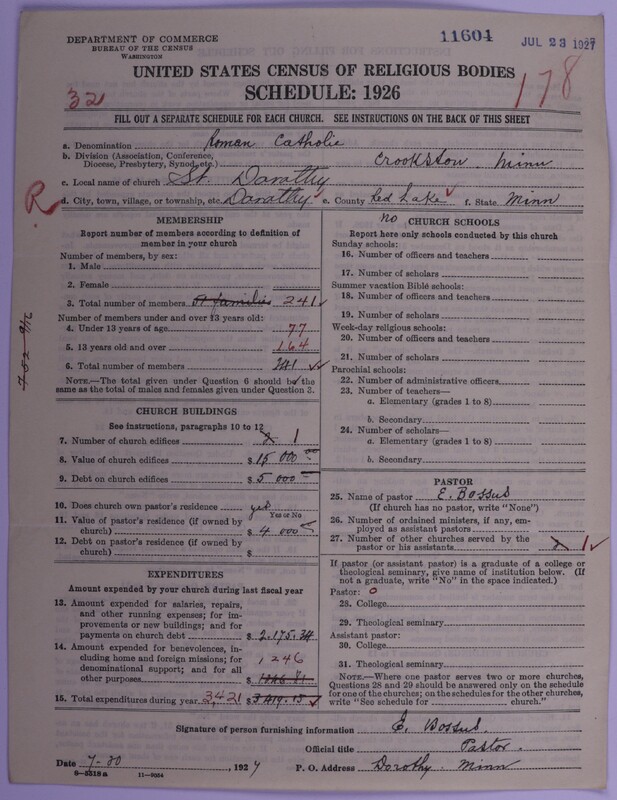 DEPARTMENT OF COMMERCE
BUREAU OF THE CENSUS
WASHINGTON
11604
JUL 23 1927
UNITED STATES CENSUS OF RELIGIOUS BODIES
SCHEDULE: 1926
32
178
FILL OUT A SEPARATE SCHEDULE FOR EACH CHURCH. SEE INSTRUCTIONS ON THE BACK OF THIS SHEET
a. Denomination Roman Catholic
b. Division (Association, Conference, Diocese, Presbytery, Synod, etc.) Crookston Minn
c. Local name of church St. Dorothy
R
d. City, town, village, or township, etc. Dorothy e. County Red Lake f. State Minn
MEMBERSHIP
Report number of members according to definition of member in your church
Number of members, by sex:
1. Male
2. Female
3. Total number of members or families 241
Number of members under and over 13 years old:
4. Under 13 years of age 77
5. 13 years old and over 164
6. Total number of members 241
NOTE.—The total given under Question 6 should be the same as the total of males and females given under Question 3.
CHURCH BUILDINGS
See instructions, paragraphs 10 to 12
7. Number of church edifices 1
8. Value of church edifices $ 15 000 00
9. Debt on church edifices $ 5 000
10. Does church own pastor's residence yes
Yes or No
11. Value of pastor's residence (if owned by church) $ 4 000
12. Debt on pastor's residence (if owned by church) $
EXPENDITURES
Amount expended by your church during last fiscal year
13. Amount expended for salaries, repairs, and other running expenses; for improvements or new buildings; and for payments on church debt $ 2.175.34
14. Amount expended for benevolences, including home and foreign missions; for denominational support; and for all other purposes 1246
$ 1246 81
15. Total expenditures during year 3,421 $
NO CHURCH SCHOOLS
Report here only schools conducted by this church
Sunday schools:
16. Number of officers and teachers
17. Number of scholars
Summer vacation Bible schools:
18. Number of officers and teachers
19. Number of scholars
Week-day religious schools:
20. Number of officers and teachers
21. Number of scholars
Parochial schools:
22. Number of administrative officers
23. Number of teachers—
a. Elementary (grades 1 to 8)
b. Secondary
24. Number of scholars—
a. Elementary (grades 1 to 8)
b. Secondary
PASTOR
25. Name of pastor E. Bossus
(If church has no pastor, write "None")
26. Number of ordained ministers, if any, employed as assistant pastors
27. Number of other churches served by the pastor or his assistants 1
If pastor (or assistant pastor) is a graduate of a college or theological seminary, give name of institution below. (If not a graduate, write "No" in the space indicated.)
Pastor: 0
28. College
29. Theological seminary
Assistant pastor:
30. College
31. Theological seminary
NOTE.—Where one pastor serves two or more churches, Questions 28 and 29 should be answered only on the schedule for one of the churches; on the schedules for the other churches, write "See schedule for church."
Signature of person furnishing information E. Bossus.
Official title Pastor.
Date 7-20, 1927 P. O. Address Dorothy Minn
8-3318a 11-9034